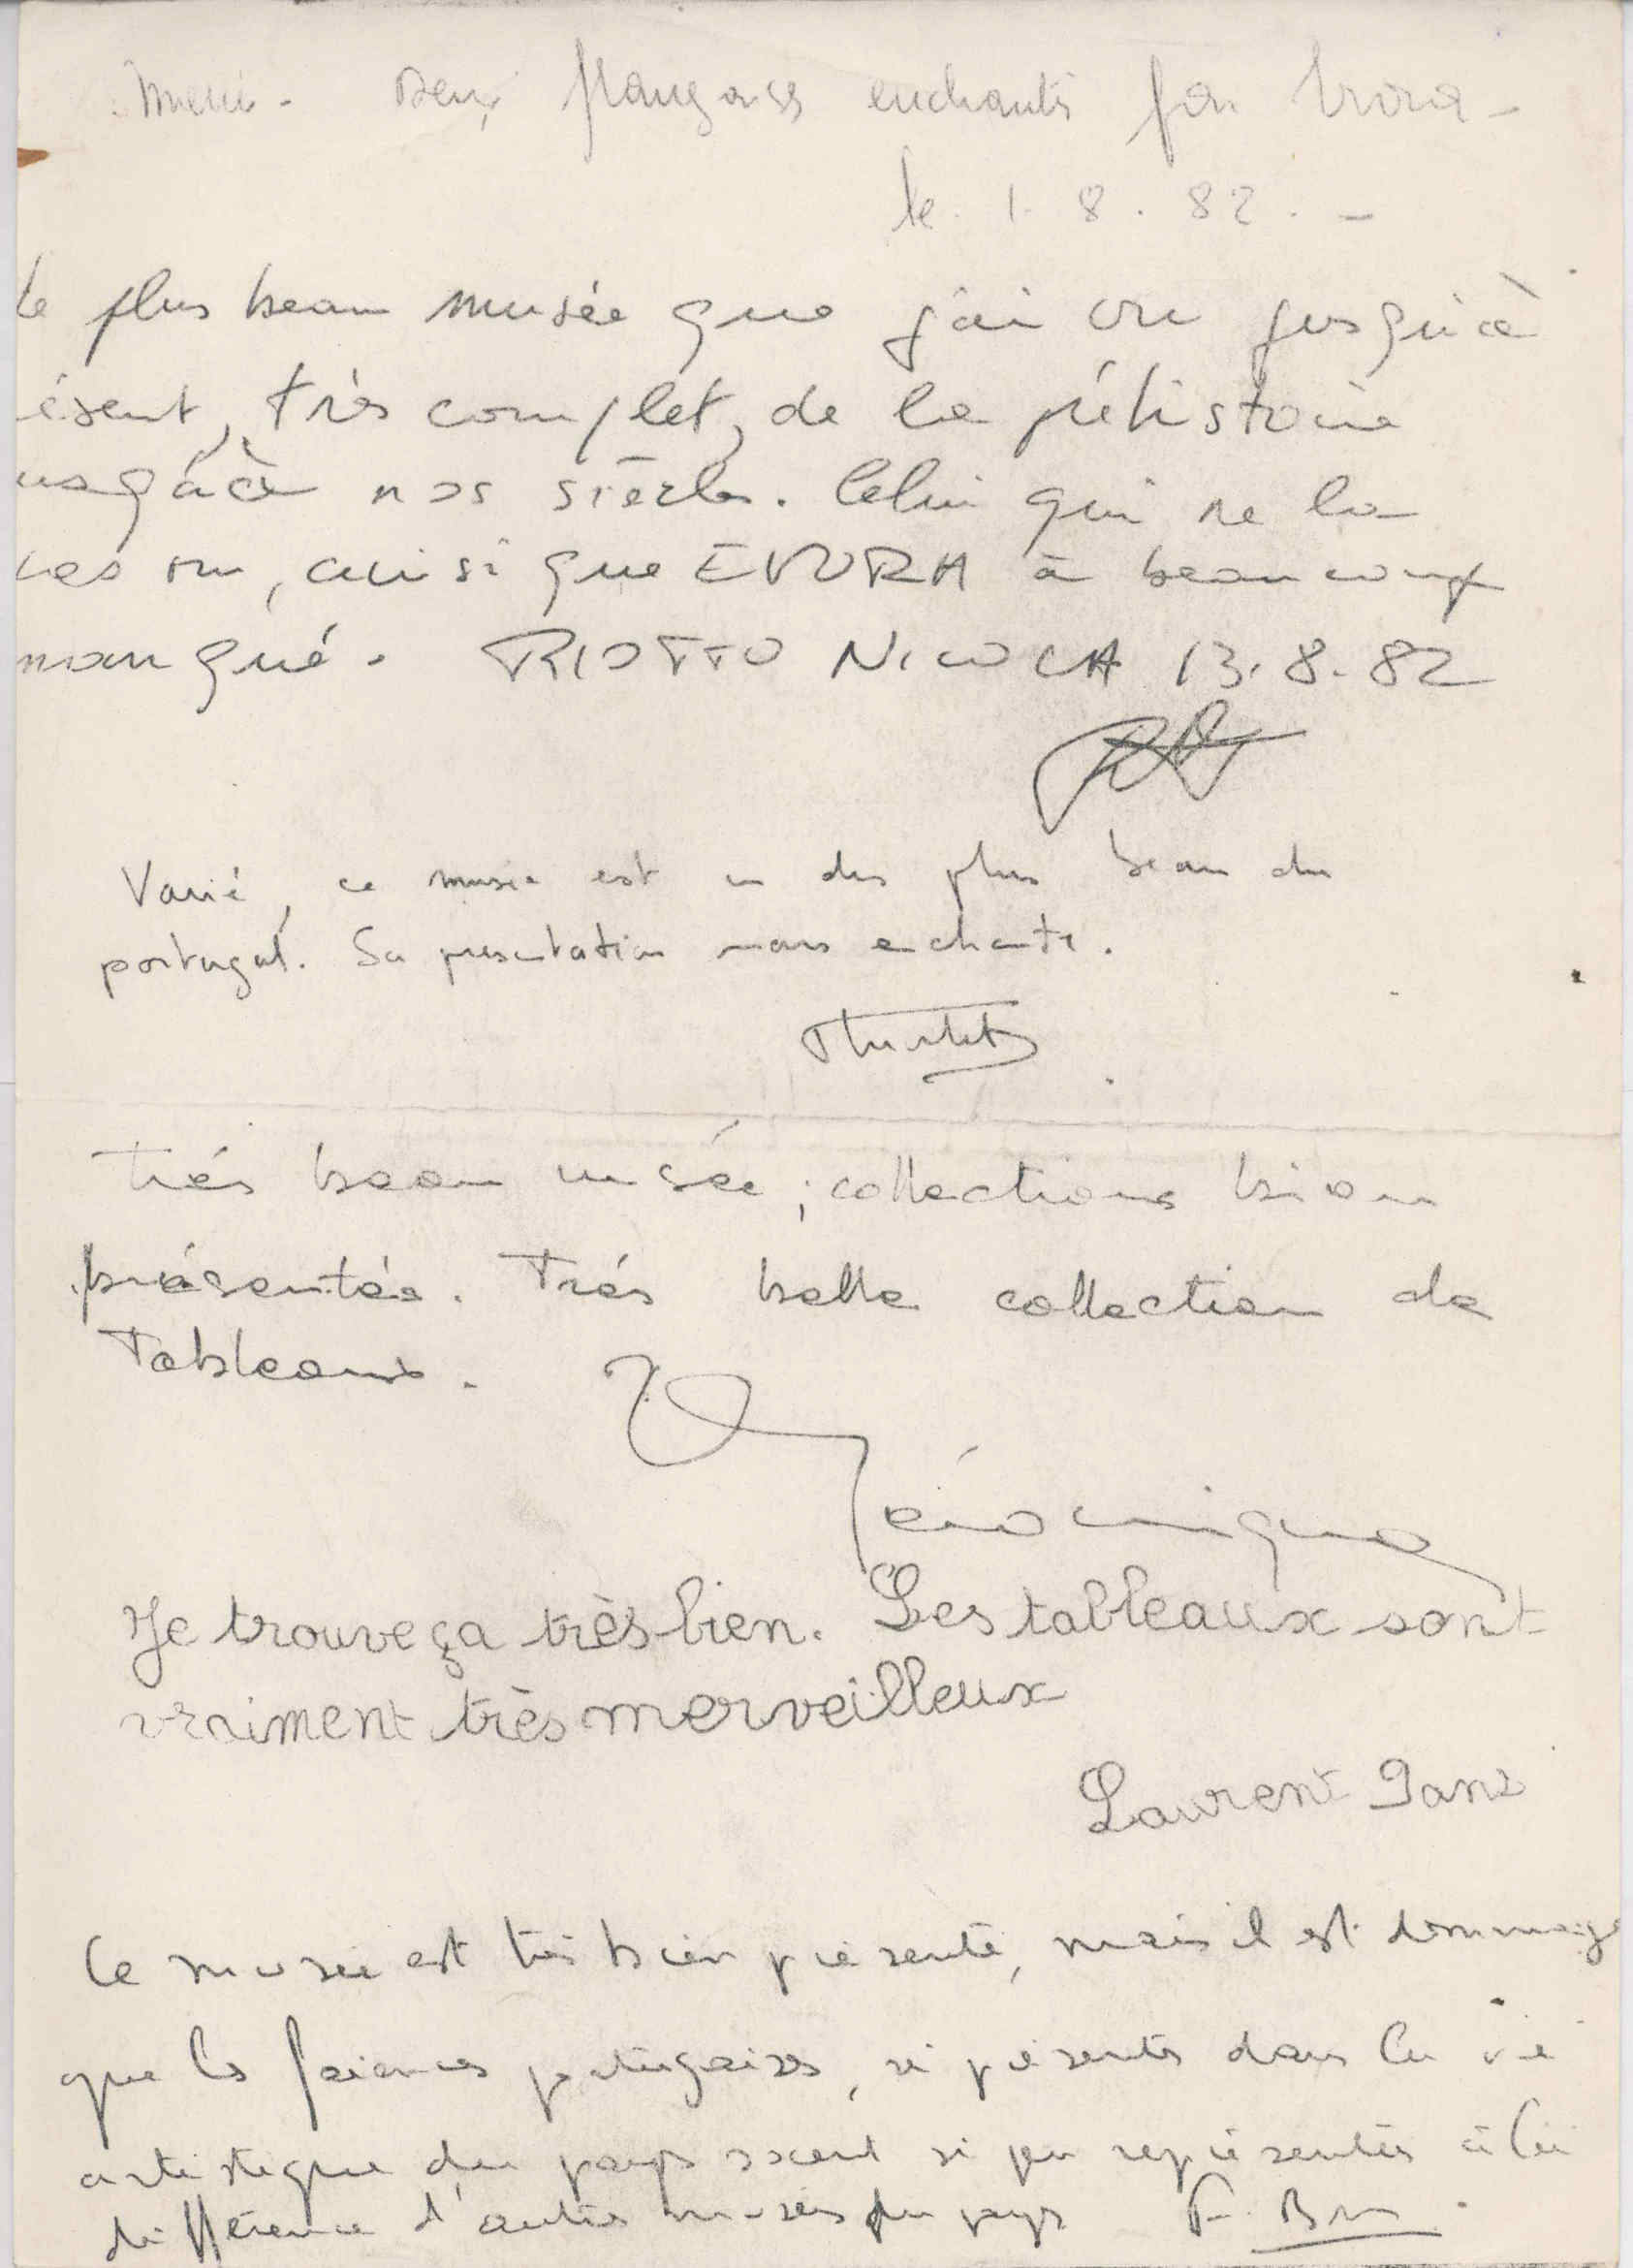 Merci - Deux français enchantés par Evora -
le. 1. 8. 82. -
Le plus beau musée que j'ai vu jusqu'à
ésent, très complet, de la préhistoire
usqu'à nos siècles. Celui qui ne la
pas vu, ainsi que EVORA à beaucoup
manqué. RIOTTO NICOLA 13.8.82
Varié, ce musée est un des plus beau du
portugal. Sa presentation nous enchante.
très beau musée ; collections bien
présentée. Très belle collection de
Tableaux.
Véronique
Je trouve ça très bien. Les tableaux sont
vraiment très merveilleux
Laurent
Ce musée est très bien présenté, mais il est dommage
que les faiences portugaises, si présentes dans la vie
artistique du pays soient si peu représentées à la
différence d'autres musées du pays F. Brun